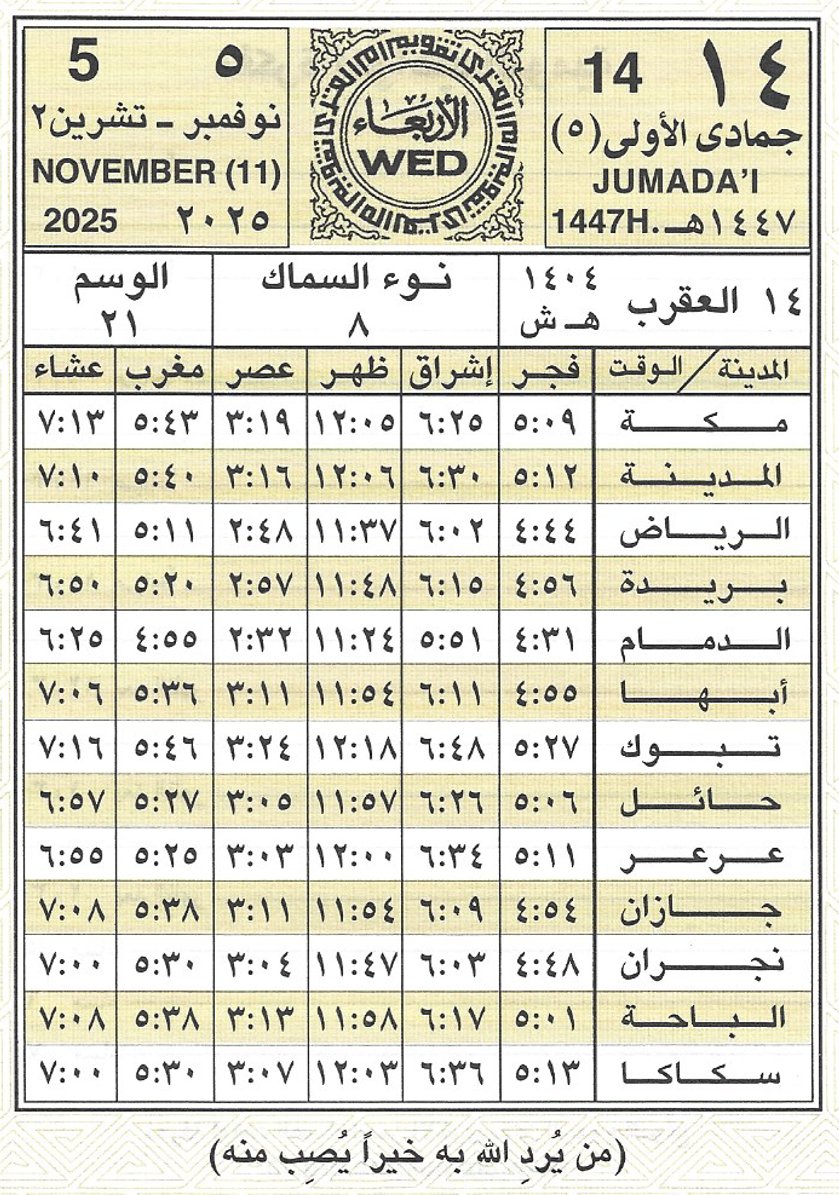 ١٤ 14
جمادى الأولى (٥)
JUMADA'I
1447H. ١٤٤٧هـ
تقويم أم القرى
الأربعاء
WED
٥ 5
نوفمبر - تشرين٢
NOVEMBER (11)
2025 ٢٠٢٥
١٤ العقرب ١٤٠٤ هـ ش
نوء السماك ٨
الوسم ٢١
المدينة / الوقت فجر إشراق ظهر عصر مغرب عشاء
مكة ٥:٠٩ ٦:٢٥ ١٢:٠٥ ٣:١٩ ٥:٤٣ ٧:١٣
المدينة ٥:١٢ ٦:٣٠ ١٢:٠٦ ٣:١٦ ٥:٤٠ ٧:١٠
الرياض ٤:٤٤ ٦:٠٢ ١١:٣٧ ٢:٤٨ ٥:١١ ٦:٤١
بريدة ٤:٥٦ ٦:١٥ ١١:٤٨ ٢:٥٧ ٥:٢٠ ٦:٥٠
الدمام ٤:٣١ ٥:٥١ ١١:٢٤ ٢:٣٢ ٤:٥٥ ٦:٢٥
أبها ٤:٥٥ ٦:١١ ١١:٥٤ ٣:١١ ٥:٣٦ ٧:٠٦
تبوك ٥:٢٧ ٦:٤٨ ١٢:١٨ ٣:٢٤ ٥:٤٦ ٧:١٦
حائل ٥:٠٦ ٦:٢٦ ١١:٥٧ ٣:٠٥ ٥:٢٧ ٦:٥٧
عرعر ٥:١١ ٦:٣٤ ١٢:٠٠ ٣:٠٣ ٥:٢٥ ٦:٥٥
جازان ٤:٥٤ ٦:٠٩ ١١:٥٤ ٣:١١ ٥:٣٨ ٧:٠٨
نجران ٤:٤٨ ٦:٠٣ ١١:٤٧ ٣:٠٤ ٥:٣٠ ٧:٠٠
الباحة ٥:٠١ ٦:١٧ ١١:٥٨ ٣:١٣ ٥:٣٨ ٧:٠٨
سكاكا ٥:١٣ ٦:٣٦ ١٢:٠٣ ٣:٠٧ ٥:٣٠ ٧:٠٠
(من يُردِ الله به خيراً يُصِب منه)